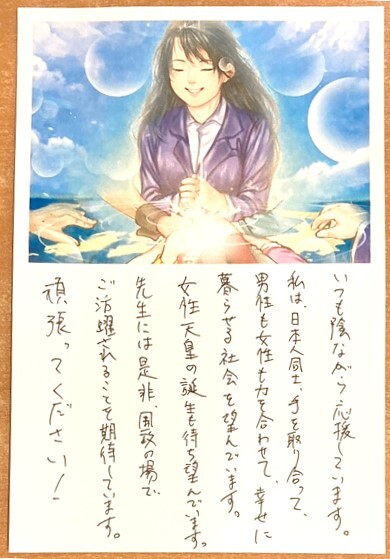 いつも陰ながら応援しています。
私は、日本人同士、手を取り合って、
男性も女性も力を合わせて、幸せに
暮らせる社会を望んでいます。
女性天皇の誕生も待ち望んでいます。
先生には是非、国政の場で
ご活躍されることを期待しています。
頑張ってください！